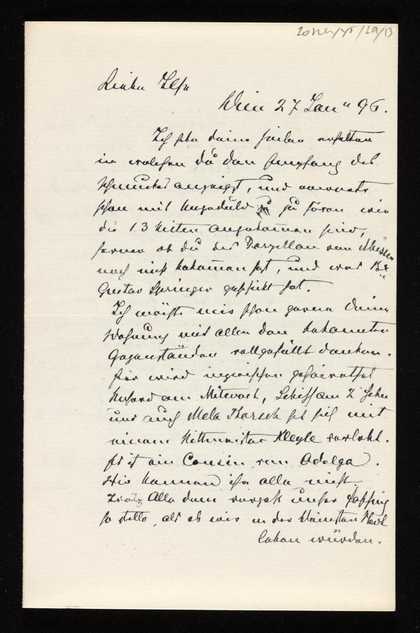 Liebe Ilse
Wien 27 Jan" 96.
Ich habe deine Zeilen erhalten
in welchen du den Empfang des
Schmuckes anzeigst, und erwarte
schon mit Ungeduld zu hören wie
die 13 Kisten angekommen sind,
ferner ob du das Porzellan von Meissen
noch nicht bekommen hast, und was
Gustav Springer geschickt hat.
Ich möchte mir schon gerne deine
Wohnung mit allen den bekannten
Gegenständen vollgefüllt denken.
Hier wird inzwischen geheirathet
am Mittwoch,
und auch Mela hat sich mit
einem Rittmeister Kleyle verlobt.
Er ist ein Cousin von Adolga.
Wir kennen ihn alle nicht
Trotz Alle dem vergeht unser Fasching
so stille, als ob wir in der kleinsten Stadt
leben würden.